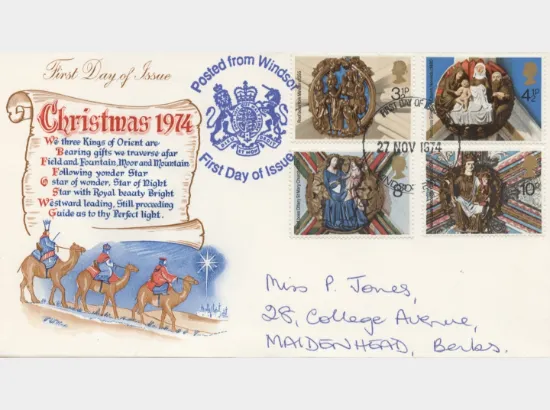 First Day of Issue
Christmas 1974
We three Kings of Orient are
Bearing gifts we traverse afar
Field and Fountain, Moor and Mountain
Following yonder Star
O star of wonder, Star of Night
Star with Royal beauty Bright
Westward leading, Still proceeding
Guide us to thy Perfect light.
Posted from Windsor
First Day of Issue
3½P
4½P
FIRST DAY OF
27 NOV 1974
8P
10P
Miss P. Jones,
28, College Avenue,
MAIDENHEAD, Berks.